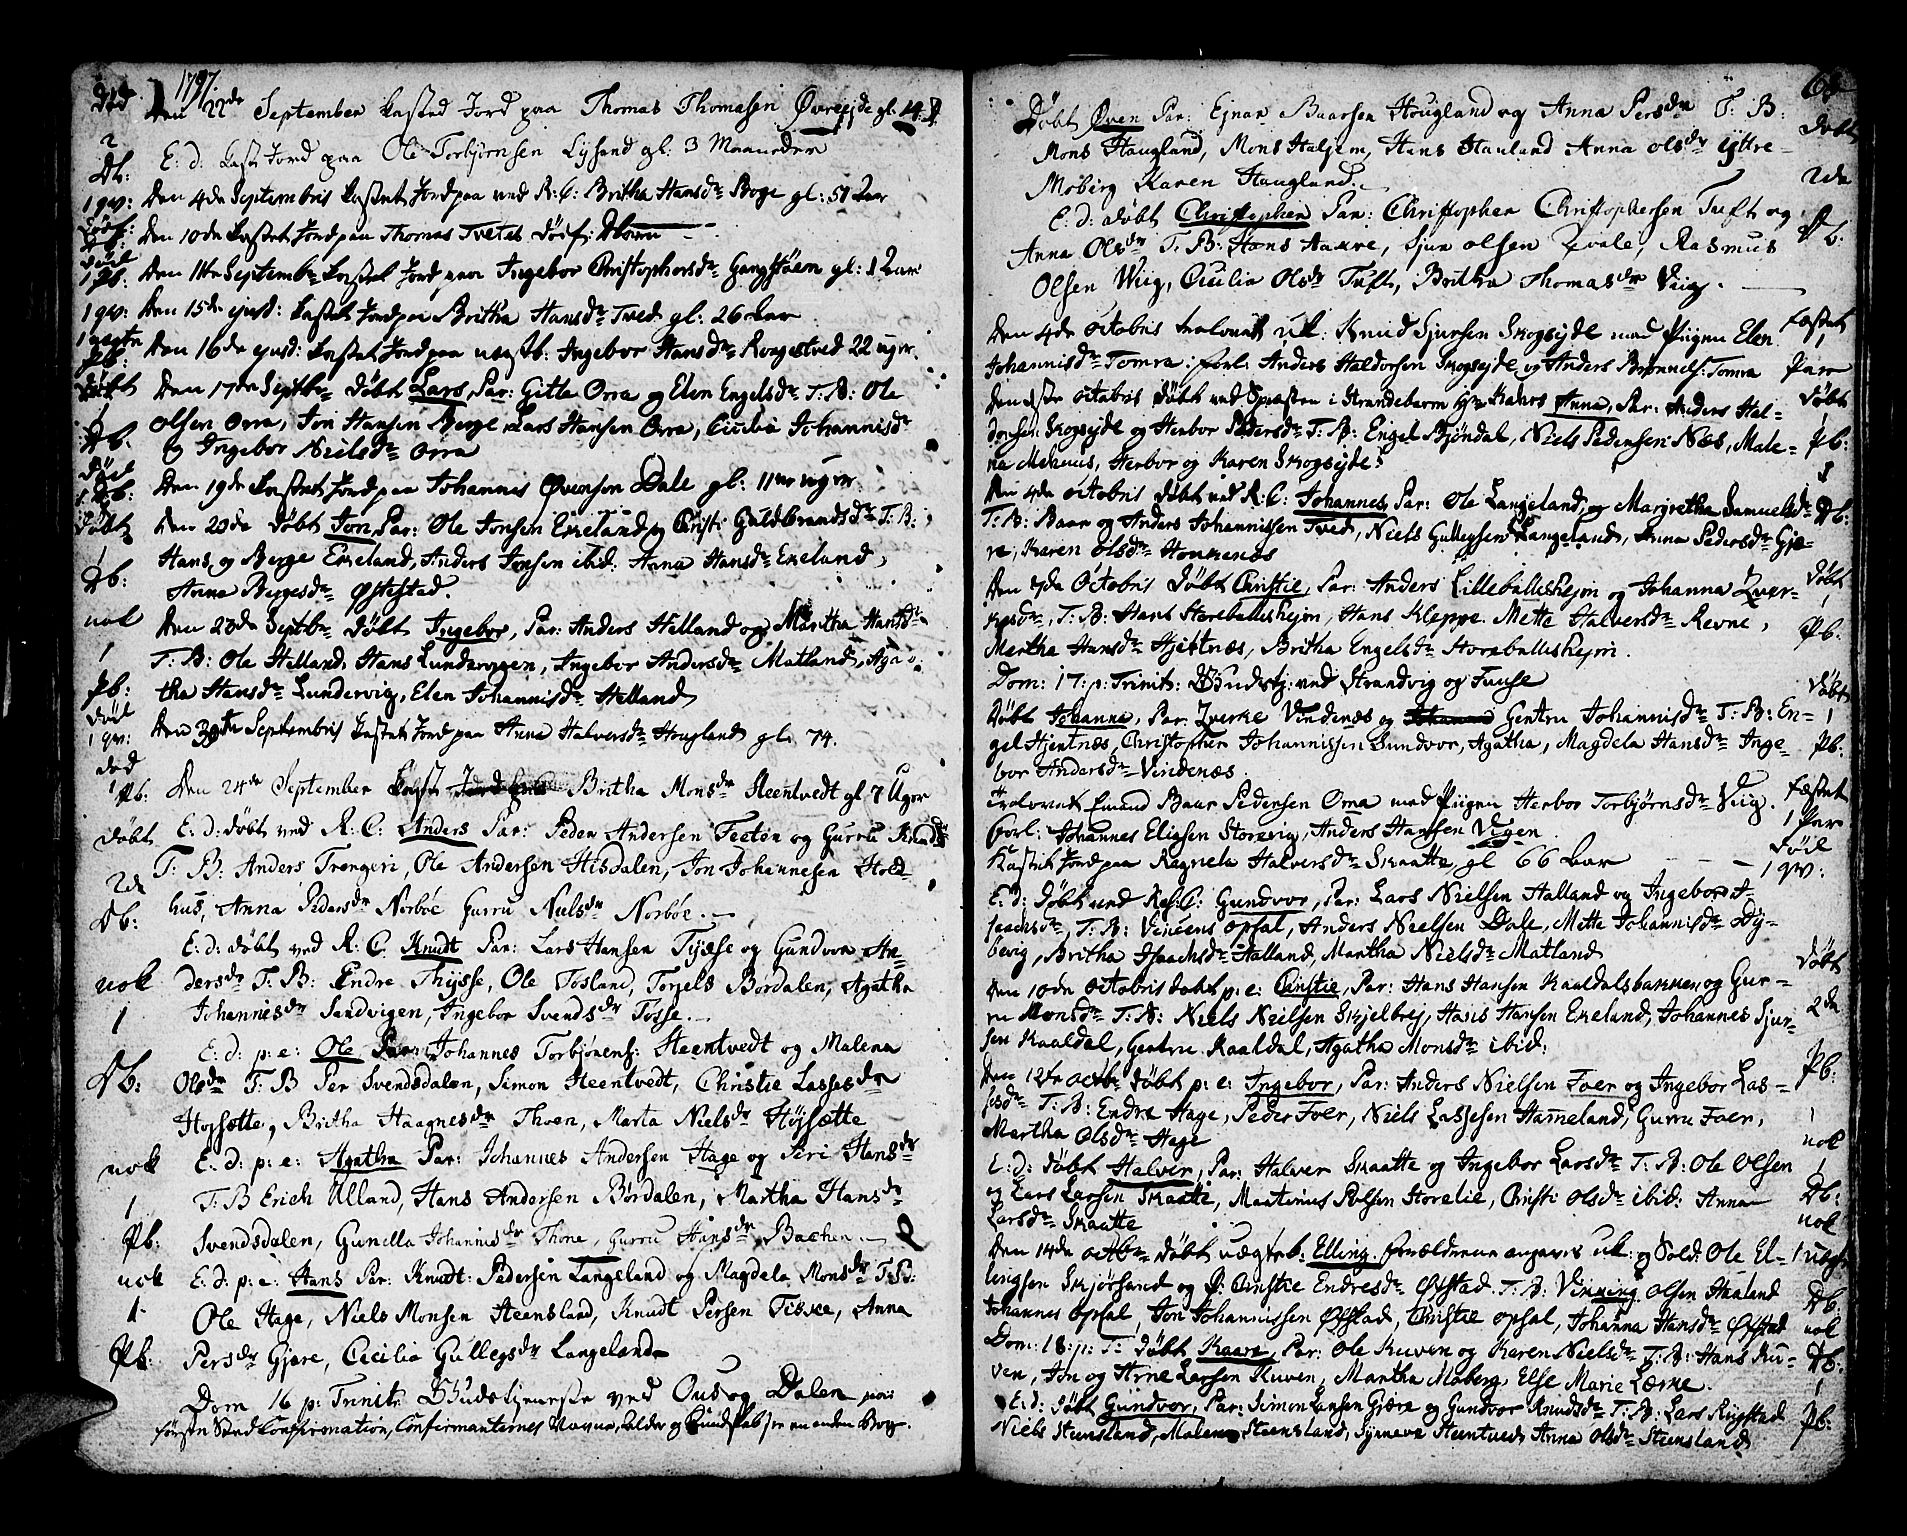 1797.
død Den 22de September kasted Jord paa Thomas Thomasen Øvreejde gl: 14 D
2 E: d: kast Jord paa Ole Torbjørnsen Lysand gl: 3 Maaneder
Db:
1 qv: Den 4de Septembris kastet Jord paa ved R: C: Britha Hansdr Boge gl: 51 Aar
Døif: Den 10de kastet Jord paa Thomas Tvetes
1 Pb: Den 11te Septembr kastet Jord paa Ingebor Christophersdr Gangstøen gl: 1 Aar
1 qv: Den 15de ejusd: kastet Jord paa Britha Hansdr Tved gl: 26 Aar
Pb: Den 16de ejusd: kastet Jord paa uægtb: Ingebor Hansdr Røgestved 22 uger.
Døbt Den 17de Septbr Døbt Lars, Par: Gitle Orra og Elen Engelsdr T: B: Ole
1 Olsen Orra, Jon Hansen Berge, Lars Hansen Orra, Cicilia Johannisdr
Db. og Ingebor Nielsdr Orra
Døil
1 Db: Den 19de kastet Jord paa Johannis Øvensen Dale gl: 11ve uger.
Døbt Den 20de Døbt Jon, Par: Ole Jonsen Ekeland og Christi Guldbrandsdr T: B:
1 Hans og Berge Ekeland, Anders Jonsen ibid. Anna Hansdr Ekeland,
Db: Anna Bergesdr Østestad.
nok Den 23de Septbr Døbt Ingebor, Par: Anders Helland og Maritha Hansdr
1 T: B: Ole Helland, Hans Lundervigen, Ingebor Andersdr Matland, Aga-
Pb: tha Hansdr Lundervig, Elen Johannisdr Helland
Døil
1 qv: Den 30te Septembris kastet Jord paa Anna Halversdr Hougland gl: 74.
død
1 Pb: Den 24de September kast Jord Britha Monsdr Steentvedt gl 7 Uger
Døbt E: d: døbt ved R: C: Anders Par: Peder Andersen Teeten og Gurru Knudsdr
2de T: B: Anders Trengeri, Ole Andersen Hisdalen, Jon Johannesen Hold-
Db: hus, Anna Pedersdr Norbøe Gurru Nielsdr Norbøe.
E: d: døbt ved R: C. Knudt Par: Lars Hansen Tysse og Gundvor An-
nok dersdr T: B: Endre Thysse, Ole Tosland, Torgels Bordalen, Agatha
1 Johannesdr Sandvigen, Ingebor Svendsdr Tosse.
E: d: p: e: Ole Par: Johannes Torbjönens: Steentvedt og Malena
Db: Olsdr T: B Per Svendsdalen, Simon Steentvedt, Christie Lassesdr
Hopsette, Britha Haagnesdr Thoen, Marta Nielsdr Høysætte
nok E: d: p: e: Agatha Par: Johannes Andersen Hage og Siri Hansdr
1 T: B Erich Ulland, Hans Andersen Bordalen, Martha Hansdr
Pb: Svendsdalen, Gunilla Johannisdr Thone, Gurru Hansdr Bachen.
nok E: d: p: e: Hans Par: Knudt: Pedersen Langeland og Magdela Monsdr T: B:
1 Ole Hage, Niels Monsen Steensland, Knudt Persen Tiske, Anna
Pb: Persdr Gjere, Cecilia Gullegsdr Langeland
Dom 16 p: Trinit: Gudstjeneste ved Ous og Dalen
første Confirmation, Confirmanternes Navne, Alder og Kundskab see en anden Bog.
68
Døbt Øven Par: Ejnar Baarsen Hougland og Anna Persdr T: B: Døbt
Mons Haugland, Mons Haljem, Hans Hauland Anna Olsdr Yttre- 2de
Moberg Karen Haugland.
E: d: døbt Christopher Par: Christopher Christophersen Tuft og Db:
Anna Olsdr T: B: Hans Aakre, Sjur Olsen Qvale, Rasmus
Olsen Wiig, Cicilia Olsdr Tuft, Britha Thomasdr Viig.
Den 4de Octobris trolovet uk: Knud Sjursen Skogsejde med Pigen Elen Fæstet
Johannisdr Tomra. forl: Anders Haldorsen Skogsejde og Anders Brønnels: Tomra Par
Octobris Døbt ved Præsten i Strandebarm Anna, Par: Anders Hal- Døbt
dorsen Skogsejde og Herbor Pedersdr T: B: Engel Bjöndal, Niels Pedersen Næs, Male- Pb:
na Mehuus, Herbor og Karen Skogsejde. 1
Den 4de Octobris Døbt ved R: C: Johannes, Par: Ole Langeland, og Margretha Samuelsdr Db:
T: B: Baar og Anders Johannissen Tved, Niels Gullegsen Langeland, Anna Pedersdr Gjæ-
re, Karen Olsdr Honkenæs
Den 7de Octobris Døbt Christie, Par: Anders Lilleballeshejm og Johanna Qver- Døbt
kesdr, T: B: Hans Storeballeshejm, Hans Kleppe, Mette Halversdr Revne, 1 Pb:
Martha Hansdr Hjertnæs, Britha Engelsdr Storeballeshejm.
Dom: 17: p: Trinit: Gudstj: ved Strandvig og Fuuse
Døbt Johanna, Par: Qverke Vindenæs og Gertru Johannisdr T: B: En- Døbt
gel Hjertnæs, Christopher Johannissen Sundvor, Agatha, Magdela Hansdr Inge- 1 Pb:
bor Andersdr Vindenæs.
Trolovet Baar Pedersen Orra med Pigen Herbor Torbjørnsdr Viig. Fæstet
Forl: Johannes Eliasen Storevig, Anders Hansen Vigen. 1 Par
Kastet Jord paa Ragnela Halversdr Skaatte, gl 66 Aar Døil 1 qv:
E: d: Døbt ved Res: C: Gundvor, Par: Lars Nielsen Halland og Ingebor I-
saachsdr, T: B: Vincens Opsal, Anders Nielsen Dale, Mette Johannisdr Dy-
bevig, Britha Isaachsdr Halland, Martha Nielsdr Matland
Den 10de Octobris døbt p: e: Christie, Par: Hans Hansen Kaaldalsbakken og Gur- Døbt
ru Monsdr T: B: Niels Nielsen Skjelbrej, Hans Hansen Ekeland, Johannes Sjur- 2de
sen Kaaldal, Gertru Kaaldal, Agatha Monsdr ibid:
Den 12te Octbr: Døbt p: e: Ingebor, Par: Anders Nielsen Foer og Ingebor Las- Pb:
sesdr T: B: Endre Hage, Peder Foer, Niels Lassesen Hameland, Gurru Foer, 1
Martha Olsdr Hage nok
E: d: Døbt Halver, Par: Halver Skaatte og Ingebor Larsdr T: B: Ole Olsen 1
og Lars Larsen Skaatte, Maatinus Polsen Storelie, Christi Olsdr ibid: Anna Db:
Larsdr Skaatte nok
Den 14de Octbr Døbt uægteb: Elling, forældrene angaves uk: og Sold: Ole El- 1 uægte
lingsen Skjørsand og P: Christie Endresdr Øfstad. T: B: Vinning Olsen Haaland Db:
Johannes Opsal, Jon Johannissen Øfstad, Christie Opsal, Johanna Hansdr Øfstad nok
Dom: 18: p: T: Døbt Kaare, Par: Ole Kuven og Karen Nielsdr T: B: Hans Ku- Db:
ven, Jon og Arne Larsen Kuven, Martha Moberg, Else Marie Lerke. 1
E: d: Døbt Gundvor, Par: Simon Larsen Gjære og Gundvor Knudsdr T: B: Lars Rygstad Pb:
Niels Steensland, Malene Steensland, Synneva Steentved Anna Olsdr Steensland